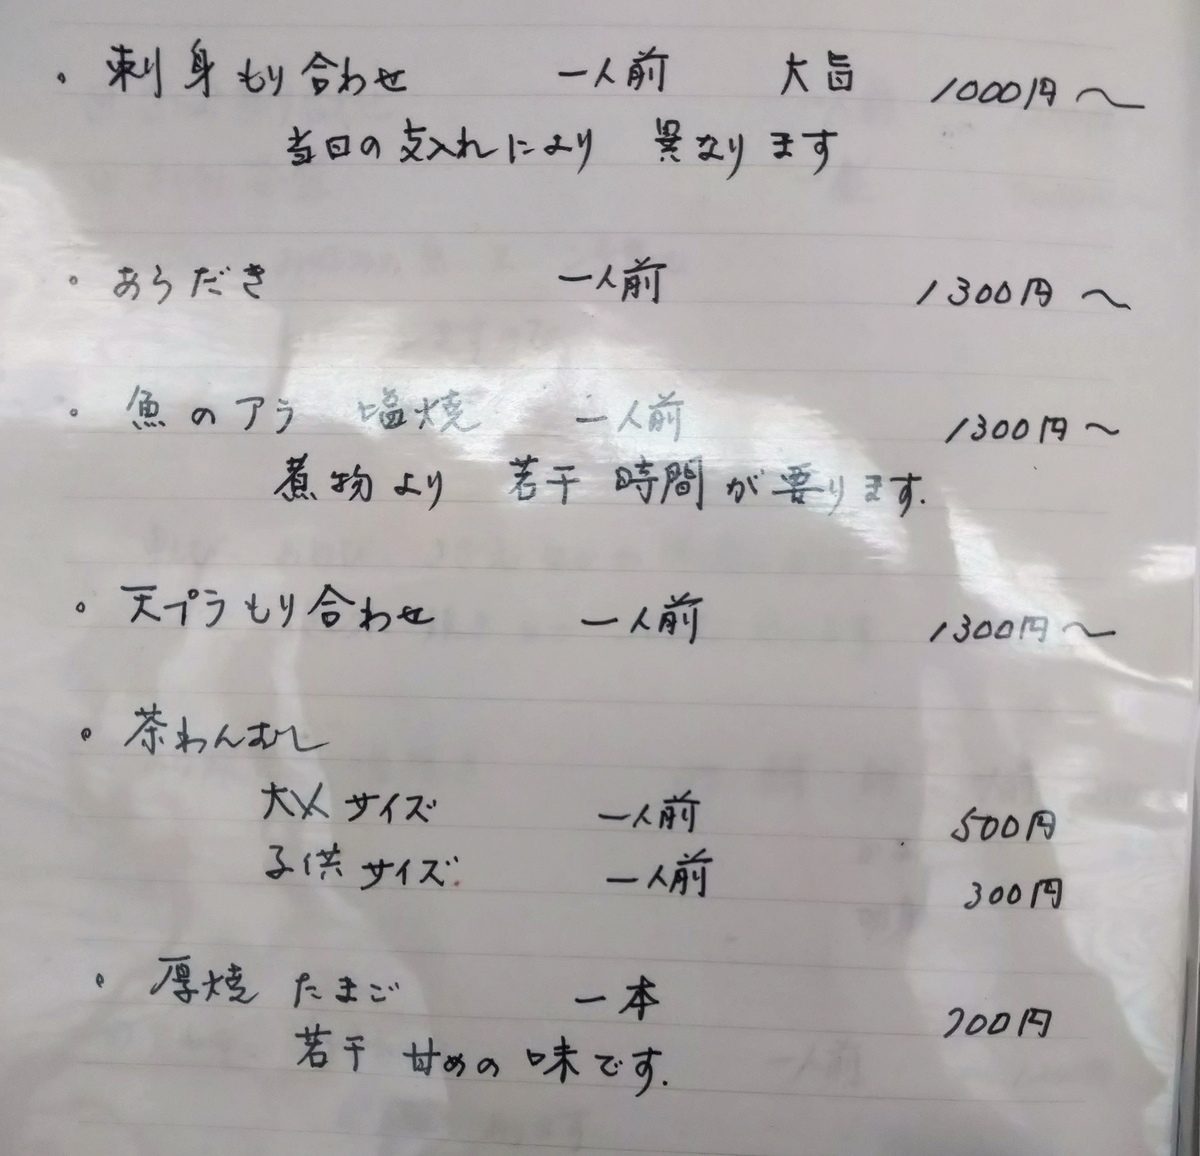 ・刺身もり合わせ 一人前 大旨 1000円～
当日の支入れにより 異なります
・あらだき 一人前 1300円～
・魚のアラ 塩焼 一人前 1300円～
煮物より 若干 時間が要ります.
・天プラもり合わせ 一人前 1300円～
・茶わんむし
大人サイズ 一人前 500円
子供サイズ 一人前 300円
・厚焼 たまご 一本 700円
若干 甘めの味です.